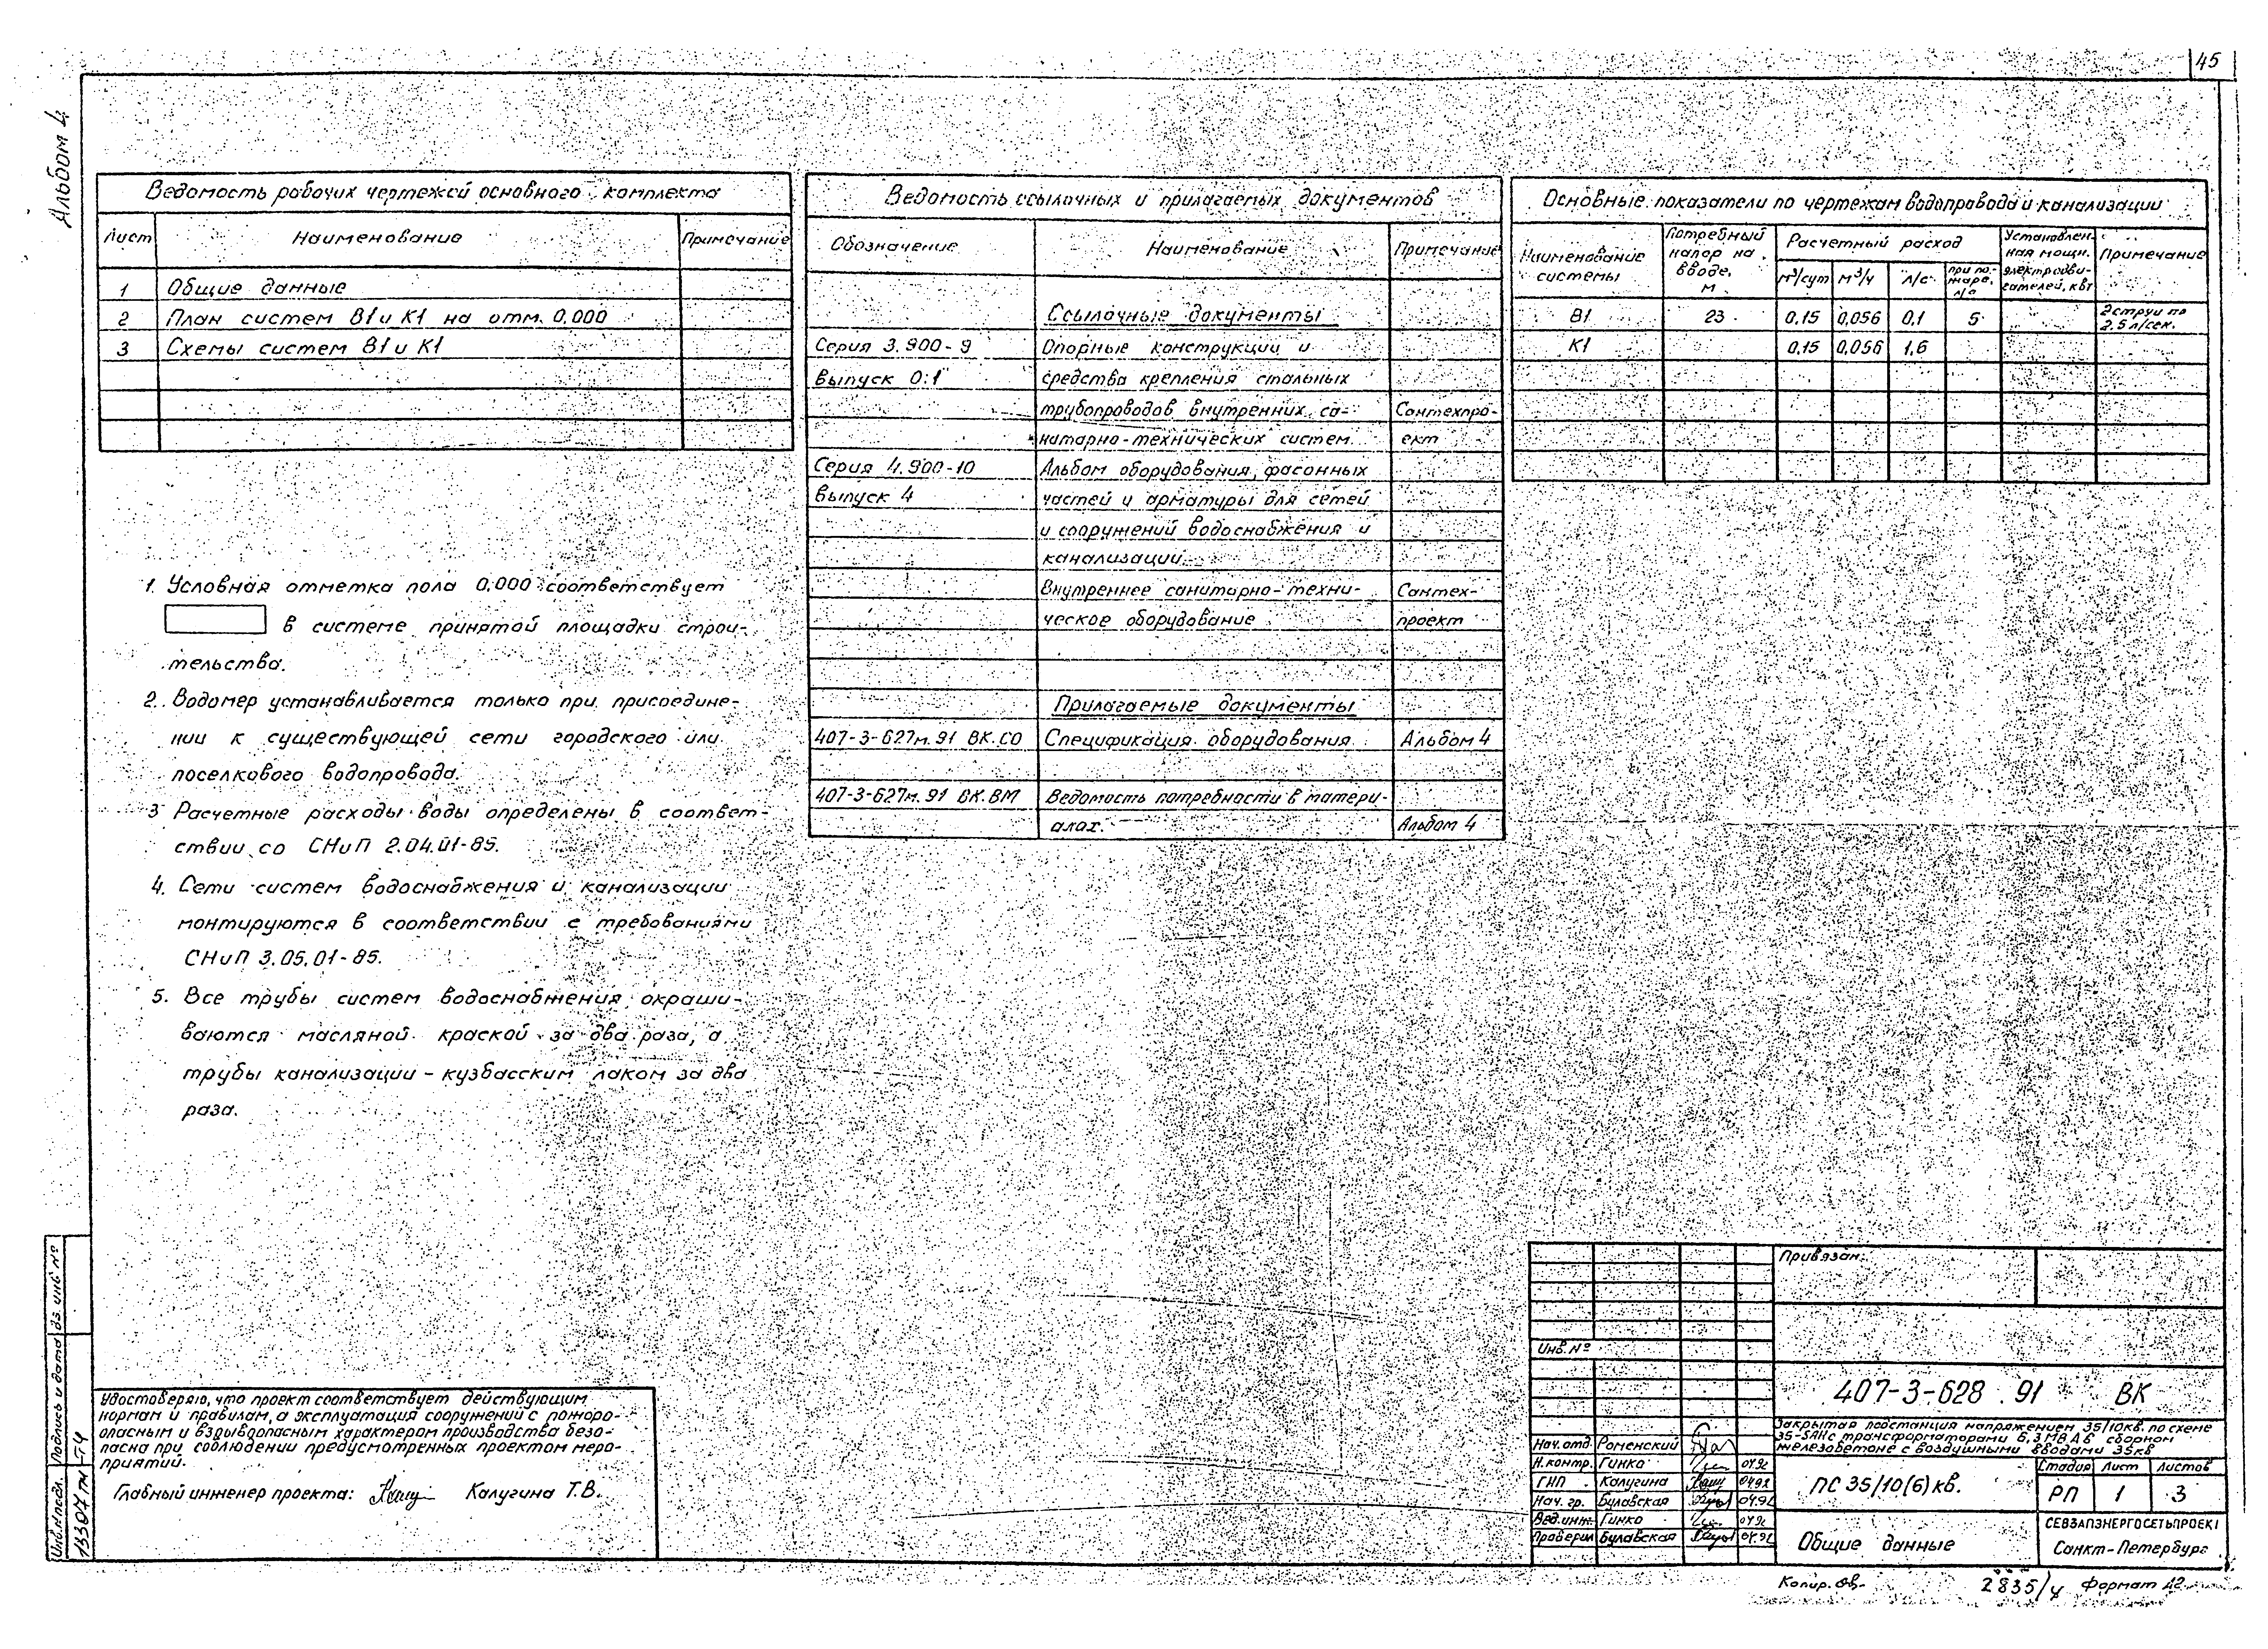 45
Альбом 4
Ведомость рабочих чертежей основного комплекта
Лист Наименование Примечание
1 Общие данные
2 План систем В1 и К1 на отм. 0,000
3 Схемы систем В1 и К1
1. Условная отметка пола 0,000 соответствует
в системе принятой площадки строи-
тельства.
2. Водомер устанавливается только при присоедине-
нии к существующей сети городского или
поселкового водопровода.
3 Расчетные расходы воды определены в соответ-
ствии со СНиП 2.04.01-85.
4. Сети систем водоснабжения и канализации
монтируются в соответствии с требованиями
СНиП 3.05.01-85.
5. Все трубы систем водоснабжения окраши-
ваются масляной краской за два раза, а
трубы канализации - кузбасским лаком за два
раза.
Ведомость ссылочных и прилагаемых документов
Обозначение Наименование Примечание
Ссылочные документы
Серия 3.900-9 Опорные конструкции и
выпуск 0:1 средства крепления стальных
трубопроводов внутренних са- Сантехпро-
нитарно-технических систем ект
Серия 4.900-10 Альбом оборудования, фасонных
выпуск 4 частей и арматуры для сетей
и сооружений водоснабжения и
канализации
Внутреннее санитарно-техни- Сантех-
ческое оборудование проект
Прилагаемые документы
407-3-627м.91 ВК.СО Спецификация оборудования Альбом 4
407-3-627м.91 ВК.ВМ Ведомость потребности в матери-
алах. Альбом 4
Основные показатели по чертежам водопровода и канализации
Наименование системы Потребный напор на вводе, м Расчетный расход Установлен-ная мощн. электродви-гателей, квт Примечание
м³/сут м³/ч л/с при по-жаре, л/с
В1 23 0,15 0,056 0,1 5 2 струи по 2.5 л/сек.
К1 0,15 0,056 1,6
Удостоверяю, что проект соответствует действующим
нормам и правилам, а эксплуатация сооружений с пожаро-
опасным и взрывоопасным характером производства безо-
пасна при соблюдении предусмотренных проектом меро-
приятий.
Главный инженер проекта: Калугина Т.В.
Инв.№подл. Подпись и дата
13307тм-т4
Привязан:
Инв. №
407-3-628.91 ВК
Закрытая подстанция напряжением 35/10кв. по схеме
35-5АН с трансформаторами 6,3 МВА в сборном
железобетоне с воздушными вводами 35кв
Нач. отд. Роменский
Н.контр. Гинко 04.92
ГИП Калугина 04.92
Нач. гр. Булавская 04.92
Вед.инж. Гинко 04.92
Проверил Булавская 04.92
ПС 35/10(6) кв.
Стадия Лист Листов
РП 1 3
Общие данные
СЕВЗАПЭНЕРГОСЕТЬПРОЕКТ
Санкт-Петербург
Копир. 2835/4 Формат А2